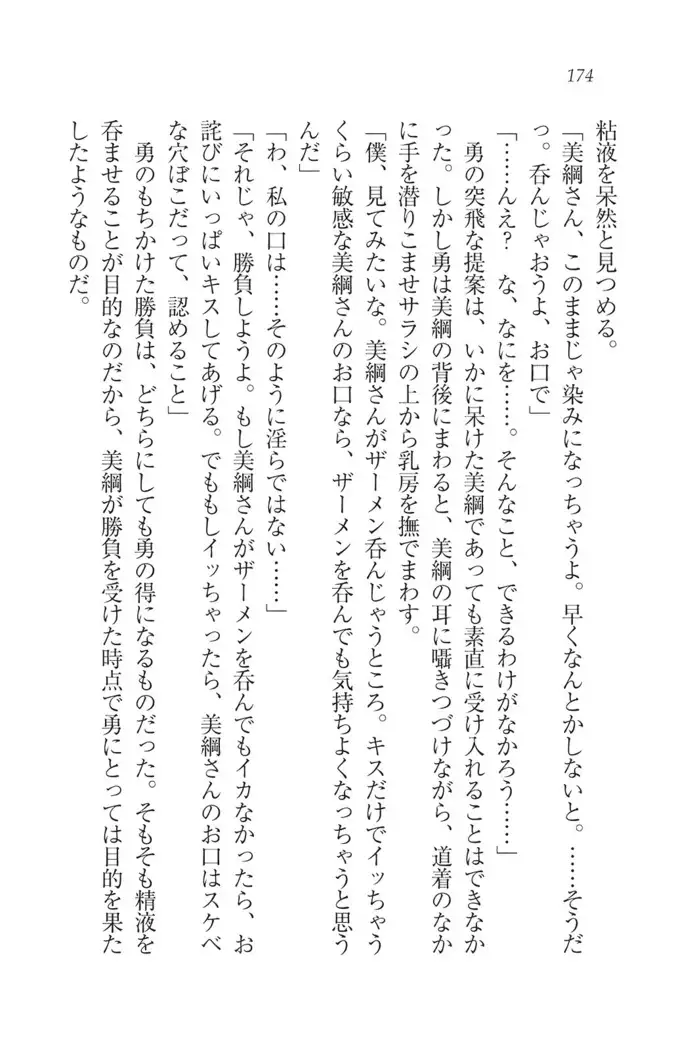 174
粘液を呆然と見つめる。
「美綱さん、このままじゃ染みになっちゃうよ。早くなんとかしないと。……そうだ
っ。呑んじゃおうよ、お口で」
「……んえ？　な、なにを……。そんなこと、できるわけがなかろう……」
　勇の突飛な提案は、いかに呆けた美綱であっても素直に受け入れることはできなか
った。しかし勇は美綱の背後にまわると、美綱の耳に囁きつづけながら、道着のなか
に手を潜りこませサラシの上から乳房を撫でまわす。
「僕、見てみたいな。美綱さんがザーメン呑んじゃうところ。キスだけでイッちゃう
くらい敏感な美綱さんのお口なら、ザーメンを呑んでも気持ちよくなっちゃうと思う
んだ」
「わ、私の口は……そのように淫らではない……」
「それじゃ、勝負しようよ。もし美綱さんがザーメンを呑んでもイカなかったら、お
詫びにいっぱいキスしてあげる。でももしイッちゃったら、美綱さんのお口はスケベ
な穴ぼこだって、認めること」
　勇のもちかけた勝負は、どちらにしても勇の得になるものだった。そもそも精液を
呑ませることが目的なのだから、美綱が勝負を受けた時点で勇にとっては目的を果た
したようなものだ。